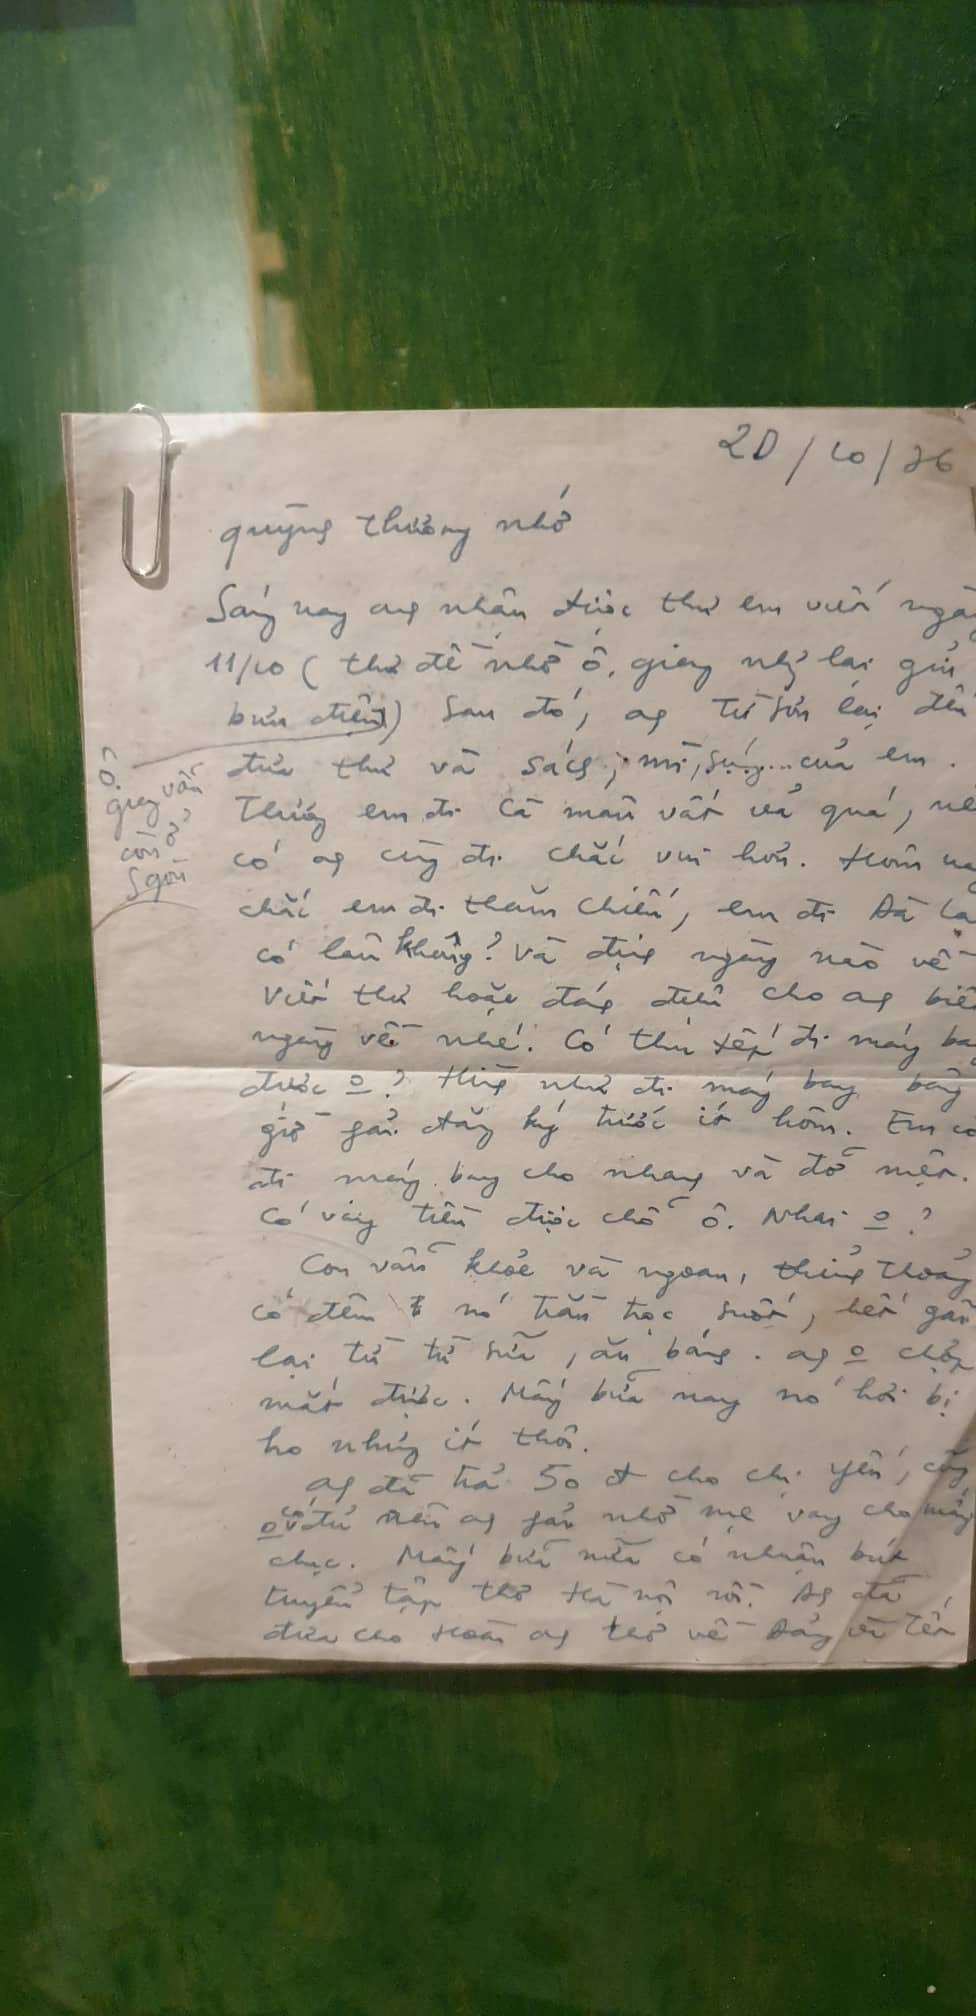 20/10/76
quỳng thương nhớ
Sáng nay ag nhận được thư em viết ngà
11/10 (thư đề nhờ ô. giang nhg lại gửi
bưu điện) Sau đó, ag Từ Sơn lại đến
đưa thư và sách, mì, súng... của em.
Thương em đi Cà mau vất vả quá, nế
có ag cùng đi chắc vui hơn. Hôm na
chắc em đi thăm Chiến, em đi Đà Lạ
có lâu không? Và định ngày nào về
Viết thư hoặc đáng điện cho ag biế
ngày về nhé. Có thu xếp đi máy ba
được o? Hình như đi máy bay bây
giờ fải đăng ký trước ít hôm. Em cố
đi máy bay cho nhanh và đỡ mệt.
Có vay tiền được chỗ ô. Nhai o?
Con vẫn khoẻ và ngoan, thỉnh thoảng
có đêm nó trằn trọc suốt, hết gãi
lại tu tu sữa, ăn bánh. ag o chợp
mắt được. Mấy bữa nay nó hơi bị
ho nhưng ít thôi.
ag đã trả 50đ cho chị Yến, cũng
o có đủ nên ag fải nhờ mẹ vay cho mấy
chục. Mấy bữa nữa có nhuận bút
tuyển tập thơ Hà nội rồi. Ag đã
đưa cho Hoàn ag thơ về Đảng và Tết
ô.
giang vẫn
còn ở
Sgòn